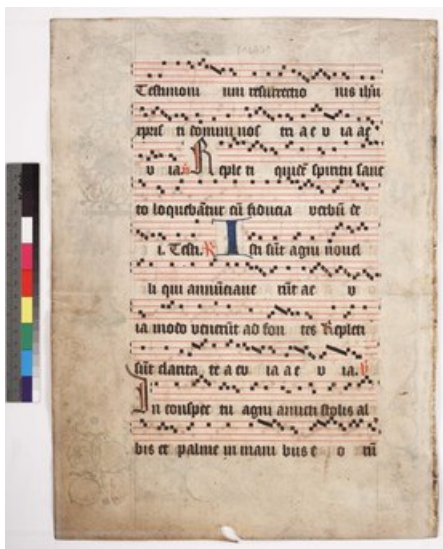 Testimoni um resurrectio nis ihu
xpisti domini nos tri a e v ia ae
v ia. Reple ti quidē spiritu sanc
to loquebātur cū fiducia verbū de
i. Testi. Isti sūt agni nouel
li qui annūciaue rūt ae v
ia modo venerūt ad fon tes Repleti
sūt clarita te a e v ia a e v ia.
In conspec tu agni amicti stolis al
bis et palme in mani bus e o rū